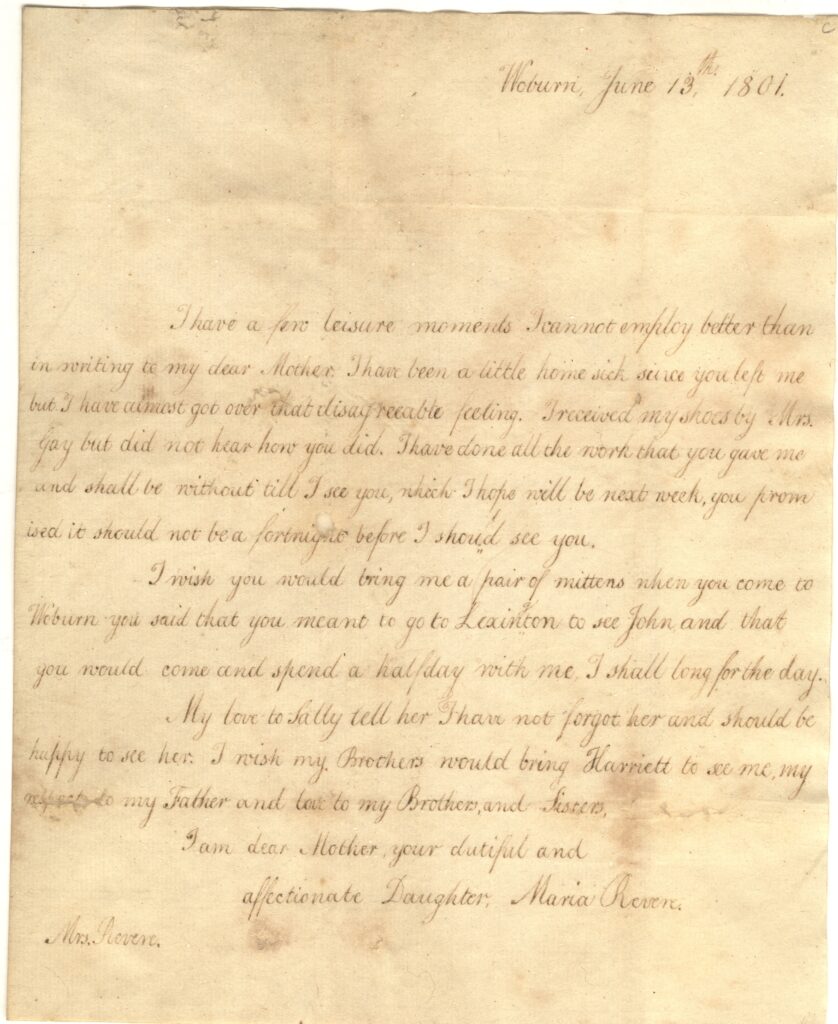 Woburn, June 13,th. 1801.
I have a few leisure moments I cannot employ better than
in writing to my dear Mother. I have been a little home sick since you left me
but I have almost got over that disagreeable feeling. I received my shoes by Mrs.
Gay but did not hear how you did. I have done all the work that you gave me
and shall be without till I see you, which I hope will be next week, you prom
ised it should not be a fortnight before I should see you.
I wish you would bring me a pair of mittens when you come to
Woburn you said that you meant to go to Lexinton to see John, and that
you would come and spend a halfday with me, I shall long for the day.
My love to Sally tell her I have not forgot her and should be
happy to see her. I wish my Brothers would bring Harriett to see me, my
respects to my Father and love to my Brothers, and Sisters,
I am dear Mother, your dutiful and
affectionate Daughter, Maria Revere.
Mrs. Revere.